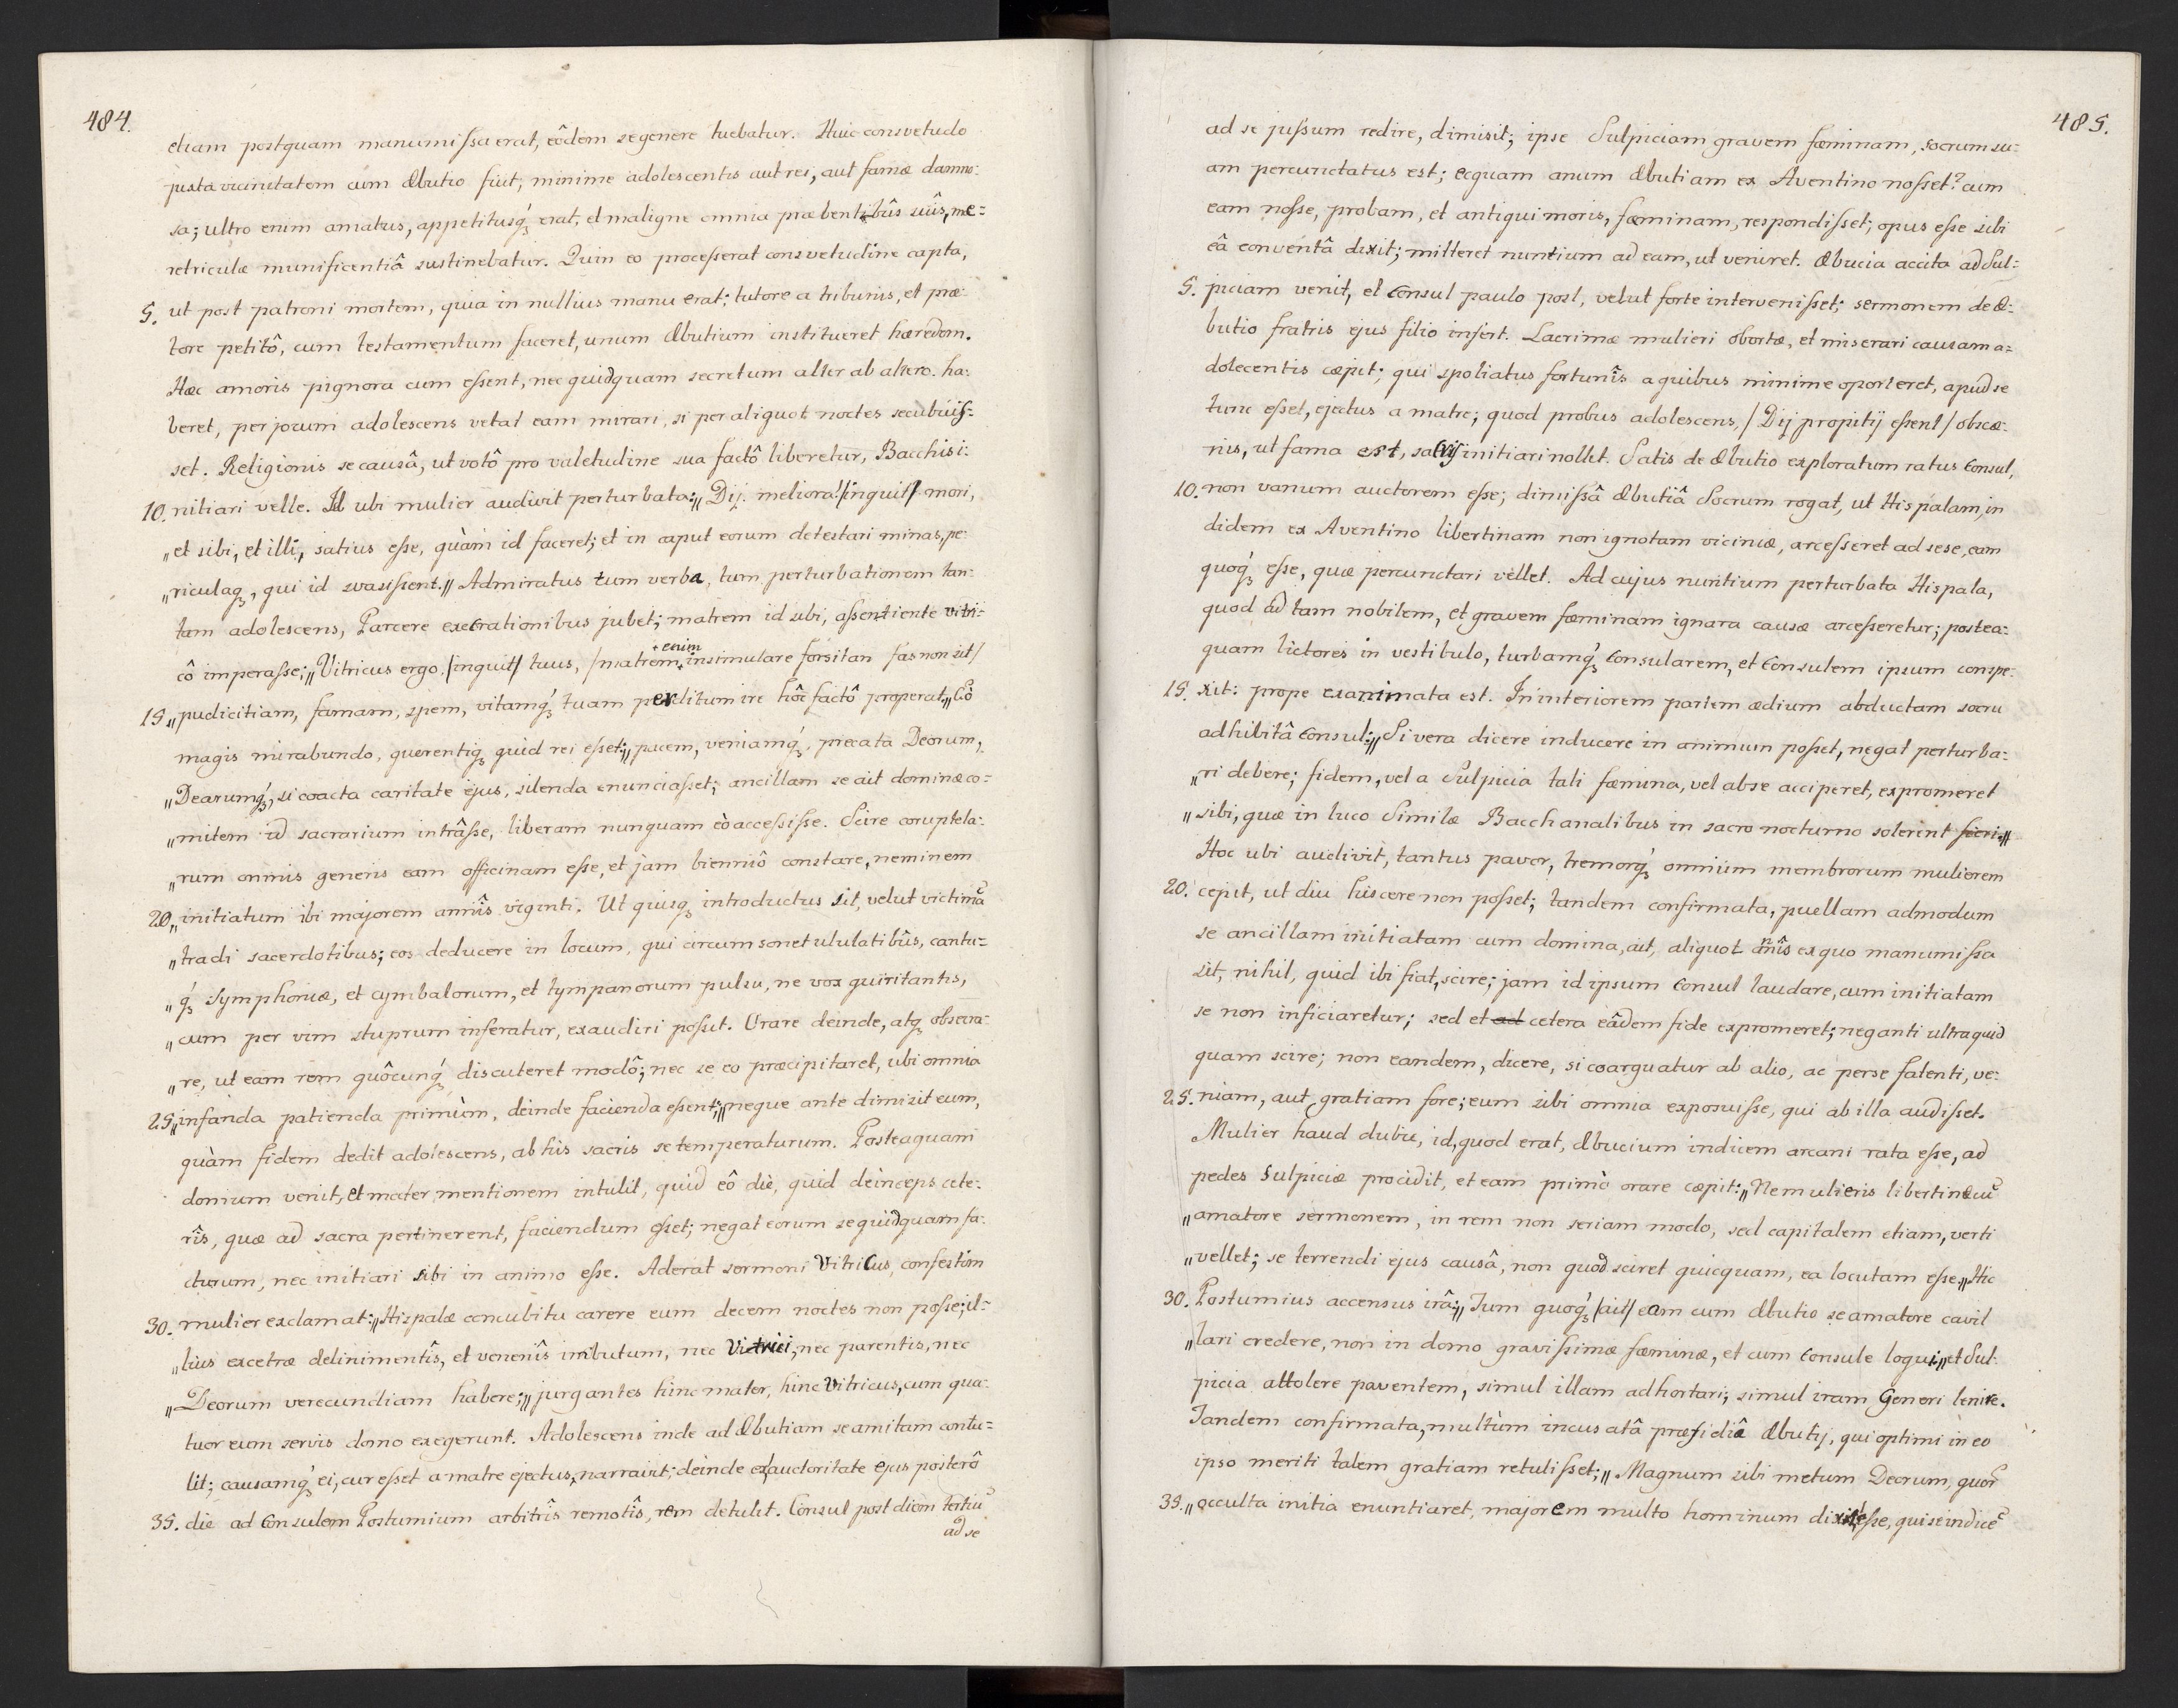 484.
etiam postquam manumissa erat, eôdem se genere tuebatur. Huic consvetudo
juxta vicinitatem cum Æbutio fuit, minime adolescentis aut rei, aut famæ damno-
sa; ultro enim amatus, appetitusq́ꝫ erat, et maligne omnia præbentibûs suîs, me-
retriculæ munificentiâ sustinebatur. Quin eo processerat consvetudine capta,
5. ut post patroni mortem, quia in nullius manu erat; tutore a tribunis, et præ-
tore petitô, cum testamentum faceret, unum Æbutium institueret hæredem.
Hæc amoris pignora cum essent, nec quidquam secretum alter ab altero ha-
beret, per jocum adolescens vetat eam mirari, si per aliquot noctes secubuis-
set. Religionis se causâ, ut votô pro valetudine sua factô liberetur, Bacchis i-
10. nitiari velle. Id ubi mulier audivit perturbata: „Dij meliora! /inquit/ mori,
„et sibi, et illi, satius esse, quàm id faceret; et in caput eorum detestari minas, pe-
„riculaqꝫ, qui id svasissent.„ Admiratus tum verba, tum perturbationem tan-
tam adolescens, Parcere execrationibus jubet; matrem id sibi, assentiente vitri-
cô imperasse; „Vitricus ergo, /inquit/ tuus, /matrem + enim insimulare forsitan fas non sit/
15. „pudicitiam, famam, spem, vitamq́ꝫ tuam perditum ire hôc factô properat„ Eô
magis mirabundo, querentiqꝫ quid rei esset; „pacem, veniamq́ꝫ, precata Deorum,
„Dearumq́ꝫ, si coacta caritate ejus, silenda enunciasset; ancillam se ait dominæ co-
„mitem id sacrarium intrâsse, liberam nunquam eò accessisse. Scire coruptela-
„rum omnis generis eam officinam esse, et jam bienniô constare, neminem
20. „initiatum ibi majorem annîs viginti. Ut quisqꝫ introductus sit, velut victimã
„tradi sacerdotibus; eos deducere in locum, qui circumsonet ululatibûs, cantu-
„q́ꝫ symphoniæ, et cymbalorum, et tympanorum pulsu, ne vox quiritantis,
„cum per vim stuprum inferatur, exaudiri possit. Orare deinde, atqꝫ obsecra-
„re, ut eam rem quôcunq́ꝫ discuteret modô; nec se eo præcipitaret, ubi omnia
25. „infanda patienda primùm, deinde facienda essent; „neque ante dimisit eum,
quàm fidem dedit adolescens, ab his sacris se temperaturum. Posteaquam
domum venit, et mater mentionem intulit, quid eô diè, quid deinceps cete-
rîs, quæ ad sacra pertinerent, faciendum esset; negat eorum se quidquam fa-
cturum, nec initiari sibi in animo esse. Aderat sermoni Vitricus, confestim
30. mulier exclamat: „Hispalæ concubitu carere eum decem noctes non posse; il-
„lius excetræ delinimentîs, et venenîs imbutum, nec Vitrici, nec parentis, nec
„Deorum verecundiam habere; „jurgantes hinc mater, hinc Vitricus, cum qua-
tuor eum servis domo exegerunt. Adolescens inde ad Æbutiam se amitam contu-
lit; causamq́ꝫ ei, cur esset a matre ejectus, narravit; deinde ex auctoritate ejus posterô
35. die ad Consulem Postumium arbitrîs remotîs, rem detulit. Consul post diem tertiũ
ad se
485.
ad se jussum redire, dimisit; ipse Sulpiciam gravem fæminam, socrum su-
am percunctatus est; ecquam anum Æbutiam ex Aventino nosset? cum
eam nosse, probam, et antiqui moris, fæminam, respondisset; opus esse sibi
eâ conventâ dixit; mitteret nuntium ad eam, ut veniret. Æbucia accita ad Sul-
5. piciam venit, et Consul paulo post, velut forte intervenisset; sermonem de Æ-
butio fratris ejus filio infert. Lacrimæ mulieri obortæ, et miserari causam a-
dolecentis cæpit; qui spoliatus fortunîs a quibus minime oporteret, apud se
tunc esset, ejectus a matre; quod probus adolescens, /Dij propitij essent/ obscæ-
nis, ut fama est, sacris initiari nollet. Satis de Æbutio exploratum ratus Consul,
10. non vanum auctorem esse; dimissâ Æbutiâ Socrum rogat, ut Hispalam, in
didem ex Aventino libertinam non ignotam viciniæ, arcesseret ad sese, eam
quoq́ꝫ esse, quæ percunctari vellet. Ad cujus nuntium perturbata Hispala,
quod ad tam nobilem, et gravem fæminam ignara causæ arcesseretur; postea-
quam lictores in vestibulo, turbamq́ꝫ Consularem, et Consulem ipsum conspe-
15. xit: prope exanimata est. In interiorem partem ædium abductam socru
adhibitâ Consul: „Si vera dicere inducere in animum posset, negat perturba-
„ri debere; fidem, vel a Sulpicia tali fæmina, vel abse acciperet, expromeret
„sibi, quæ in luco Similæ Bacchanalibus in sacro nocturno solerent fieri.„
Hoc ubi audivit, tantus pavor, tremorq́ꝫ omnium membrorum mulierem
20. cepit, ut diu hiscere non posset; tandem confirmata, puellam admodum
se ancillam initiatam cum domina, ait, aliquot annîs ex quo manumissa
sit, nihil, quid ibi fiat, scire; jam id ipsum Consul laudare, cum initiatam
se non inficiaretur; sed et ad cetera eâdem fide expromeret; neganti ultra quid
quam scire; non eandem, dicere, si coarguatur ab alio, ac perse fatenti, ve-
25. niam, aut gratiam fore; eum sibi omnia exposuisse, qui ab illa audisset.
Mulier haud dubie, id, quod erat, Æbucium indicem arcani rata esse, ad
pedes Sulpiciæ procidit, et eam primò orare cæpit: „Ne mulieris libertinæ cũ
„amatore sermonem, in rem non seriam modo, sed capitalem etiam, verti
„vellet; se terrendi ejus causâ, non quod sciret quicquam, ea locutam esse„ Hic
30. Postumius accensus irâ: „Tum quoq́ꝫ /ait/ eam cum Æbutio se amatore cavil
„lari credere, non in domo gravissimæ fæminæ, et cum Consule loqui; „et Sul-
picia attolere paventem, simul illam adhortari; simul iram Generi lenire.
Tandem confirmata, multùm incusatâ præfidiâ Æbutij, qui optimi in eo
ipso meriti talem gratiam retulisset; „Magnum sibi metum Deorum, quor̃
35. „occulta initia enuntiaret, majorem multo hominum dixit esse, qui se indicẽ